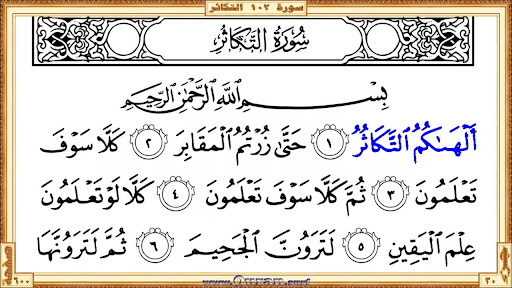 سورة ١٠٢ التكاثر
سُورَةُ التَّكَاثُرِ
بِسْمِ اللَّهِ الرَّحْمَٰنِ الرَّحِيمِ
أَلْهَاكُمُ التَّكَاثُرُ ١ حَتَّىٰ زُرْتُمُ الْمَقَابِرَ ٢ كَلَّا سَوْفَ
تَعْلَمُونَ ٣ ثُمَّ كَلَّا سَوْفَ تَعْلَمُونَ ٤ كَلَّا لَوْ تَعْلَمُونَ
عِلْمَ الْيَقِينِ ٥ لَتَرَوُنَّ الْجَحِيمَ ٦ ثُمَّ لَتَرَوُنَّهَا
صفحة ٦٠٠
٣٠